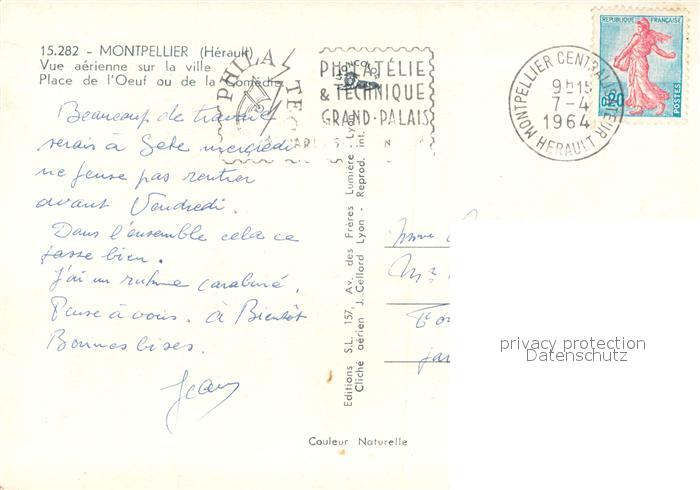 15.282 - MONTPELLIER (Hérault)
Vue aérienne sur la ville
Place de l'Oeuf ou de la Comédie
PHILATEC
PHILATÉLIE
& TECHNIQUE
GRAND-PALAIS
PARIS
REPUBLIQUE FRANÇAISE
0,20
POSTES
MONTPELLIER CENTRALISATEUR
9H15
7-4
1964
HERAULT
Beaucoup de travail
serais à Sète mercredi
ne pense pas rentrer
avant Vendredi.
Dans l'ensemble cela ce
passe bien.
J'ai un rhume carabiné.
Pense à vous. à Bientôt
Bonnes bises.
Jean
Editions S.L. 157, Av. des Frères Lumière - Lyon
Cliché aérien J. Cellard Lyon - Reprod. int.
Couleur Naturelle
privacy protection
Datenschutz